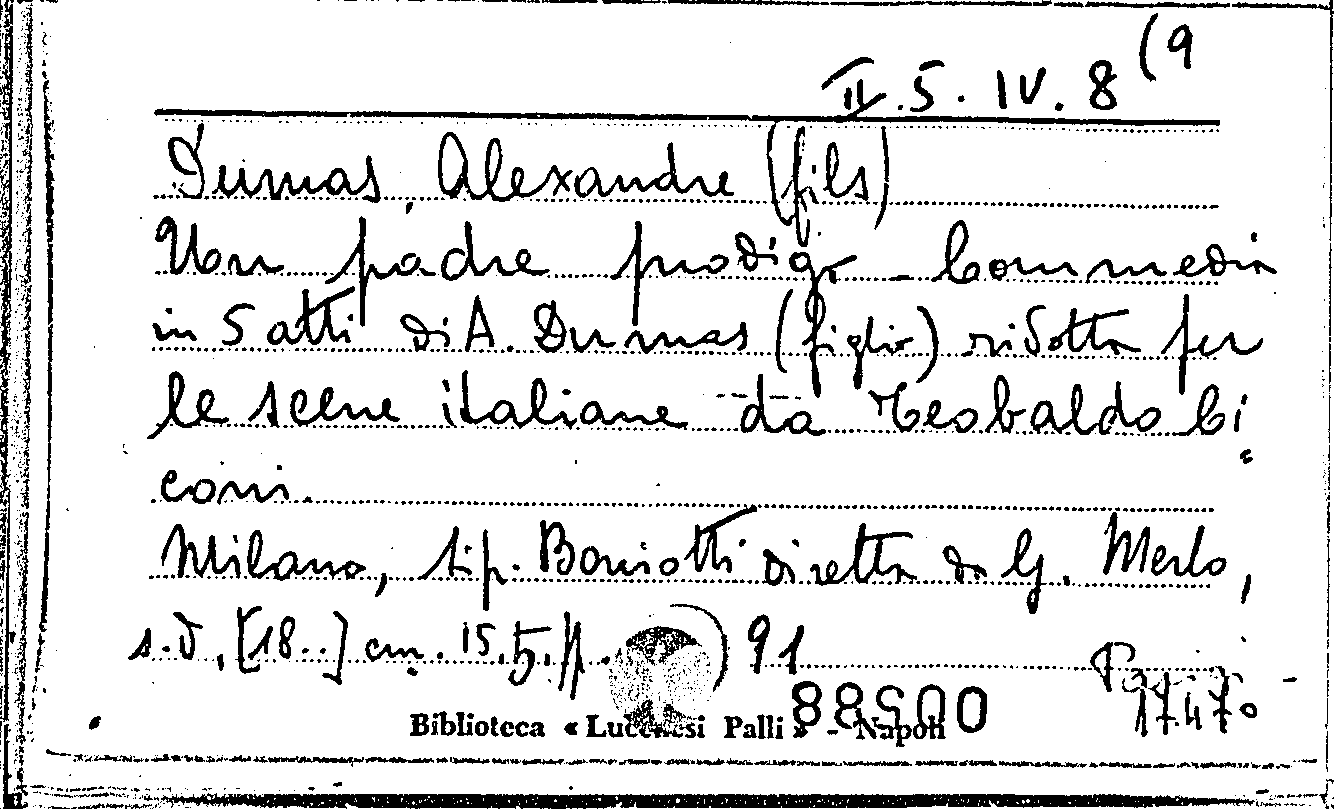 II.5.IV.8 (9
Dumas, Alexandre (fils)
Un padre prodigo - Commedia
in 5 atti di A. Dumas (figlio) ridotta per
le scene italiane da Teobaldo Ci=
coni.
Milano, tip. Boniotti diretta da G. Merlo,
s.d. [18..] cm. 15,5. pp. ) 91
17470
Biblioteca « Lucchesi Palli » - Napoli